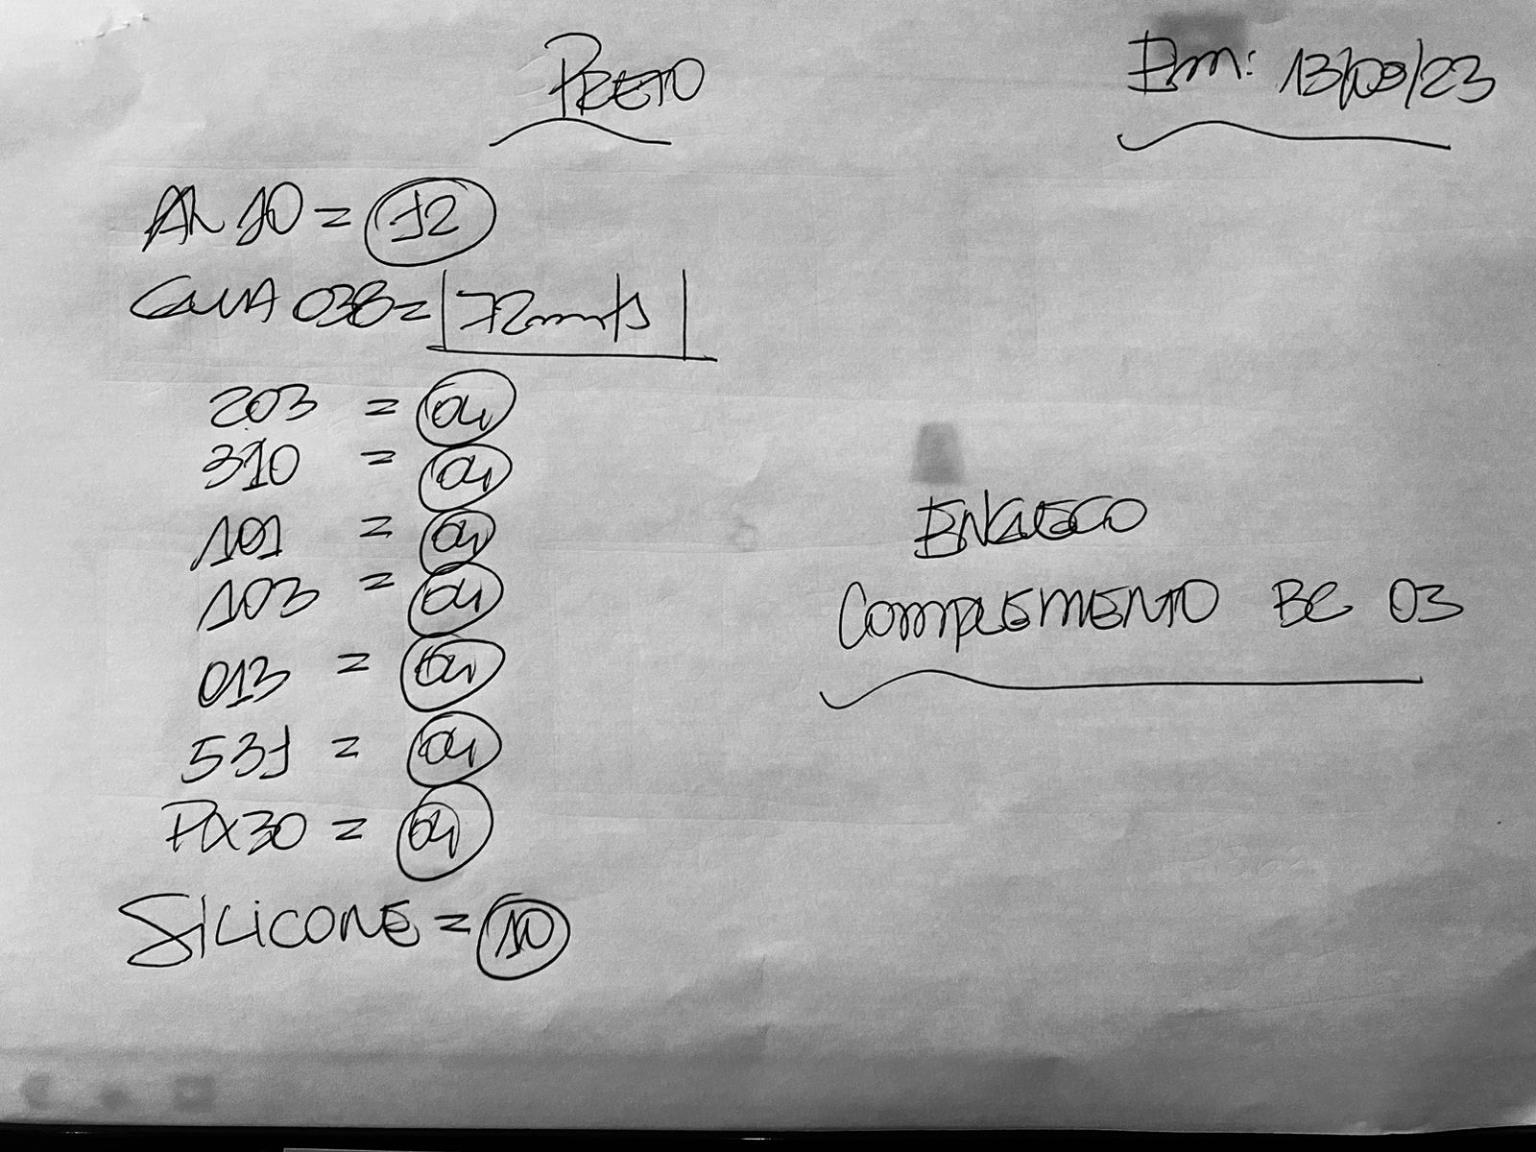 PRETO
Em: 13/09/23
AL 10 = 12
GUIA 038 = 72mts
203 = 04
310 = 04
101 = 04
103 = 04
013 = 04
531 = 04
PX30 = 04
SILICONE = 10
ENGECO
COMPLEMENTO BC 03